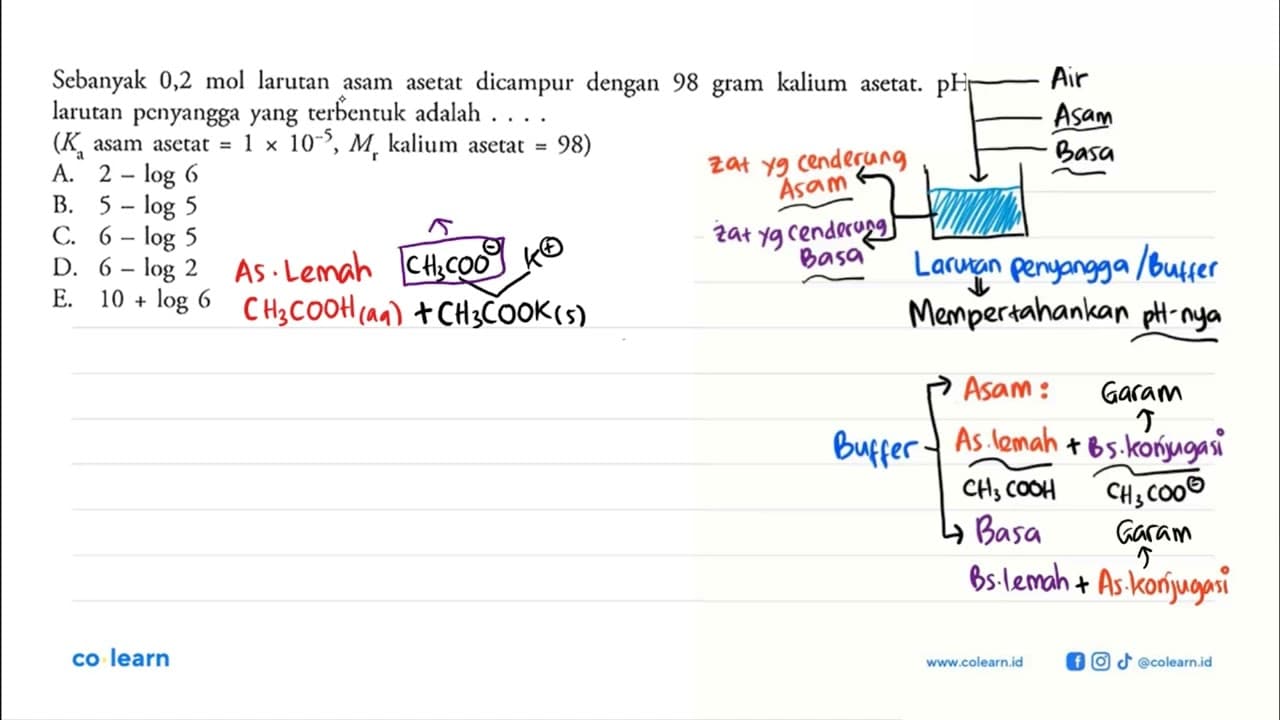 Sebanyak 0,2 mol larutan asam asetat dicampur dengan 98 gram kalium asetat. pH
larutan penyangga yang terbentuk adalah . . . .
(Kₐ asam asetat = 1 × 10⁻⁵, Mᵣ kalium asetat = 98)
A. 2 – log 6
B. 5 – log 5
C. 6 – log 5
D. 6 – log 2
E. 10 + log 6
As. Lemah
CH₃COO⊖ K⊕
CH₃COOH(aq) + CH₃COOK(s)
Air
Asam
Basa
Zat yg cenderung
Asam
Zat yg cenderung
Basa
Larutan penyangga/Buffer
Mempertahankan pH-nya
Buffer
Asam : Garam
As.lemah + Bs.konjugasi
CH₃COOH CH₃COO⊖
Basa Garam
Bs.lemah + As.konjugasi
co learn
www.colearn.id @colearn.id